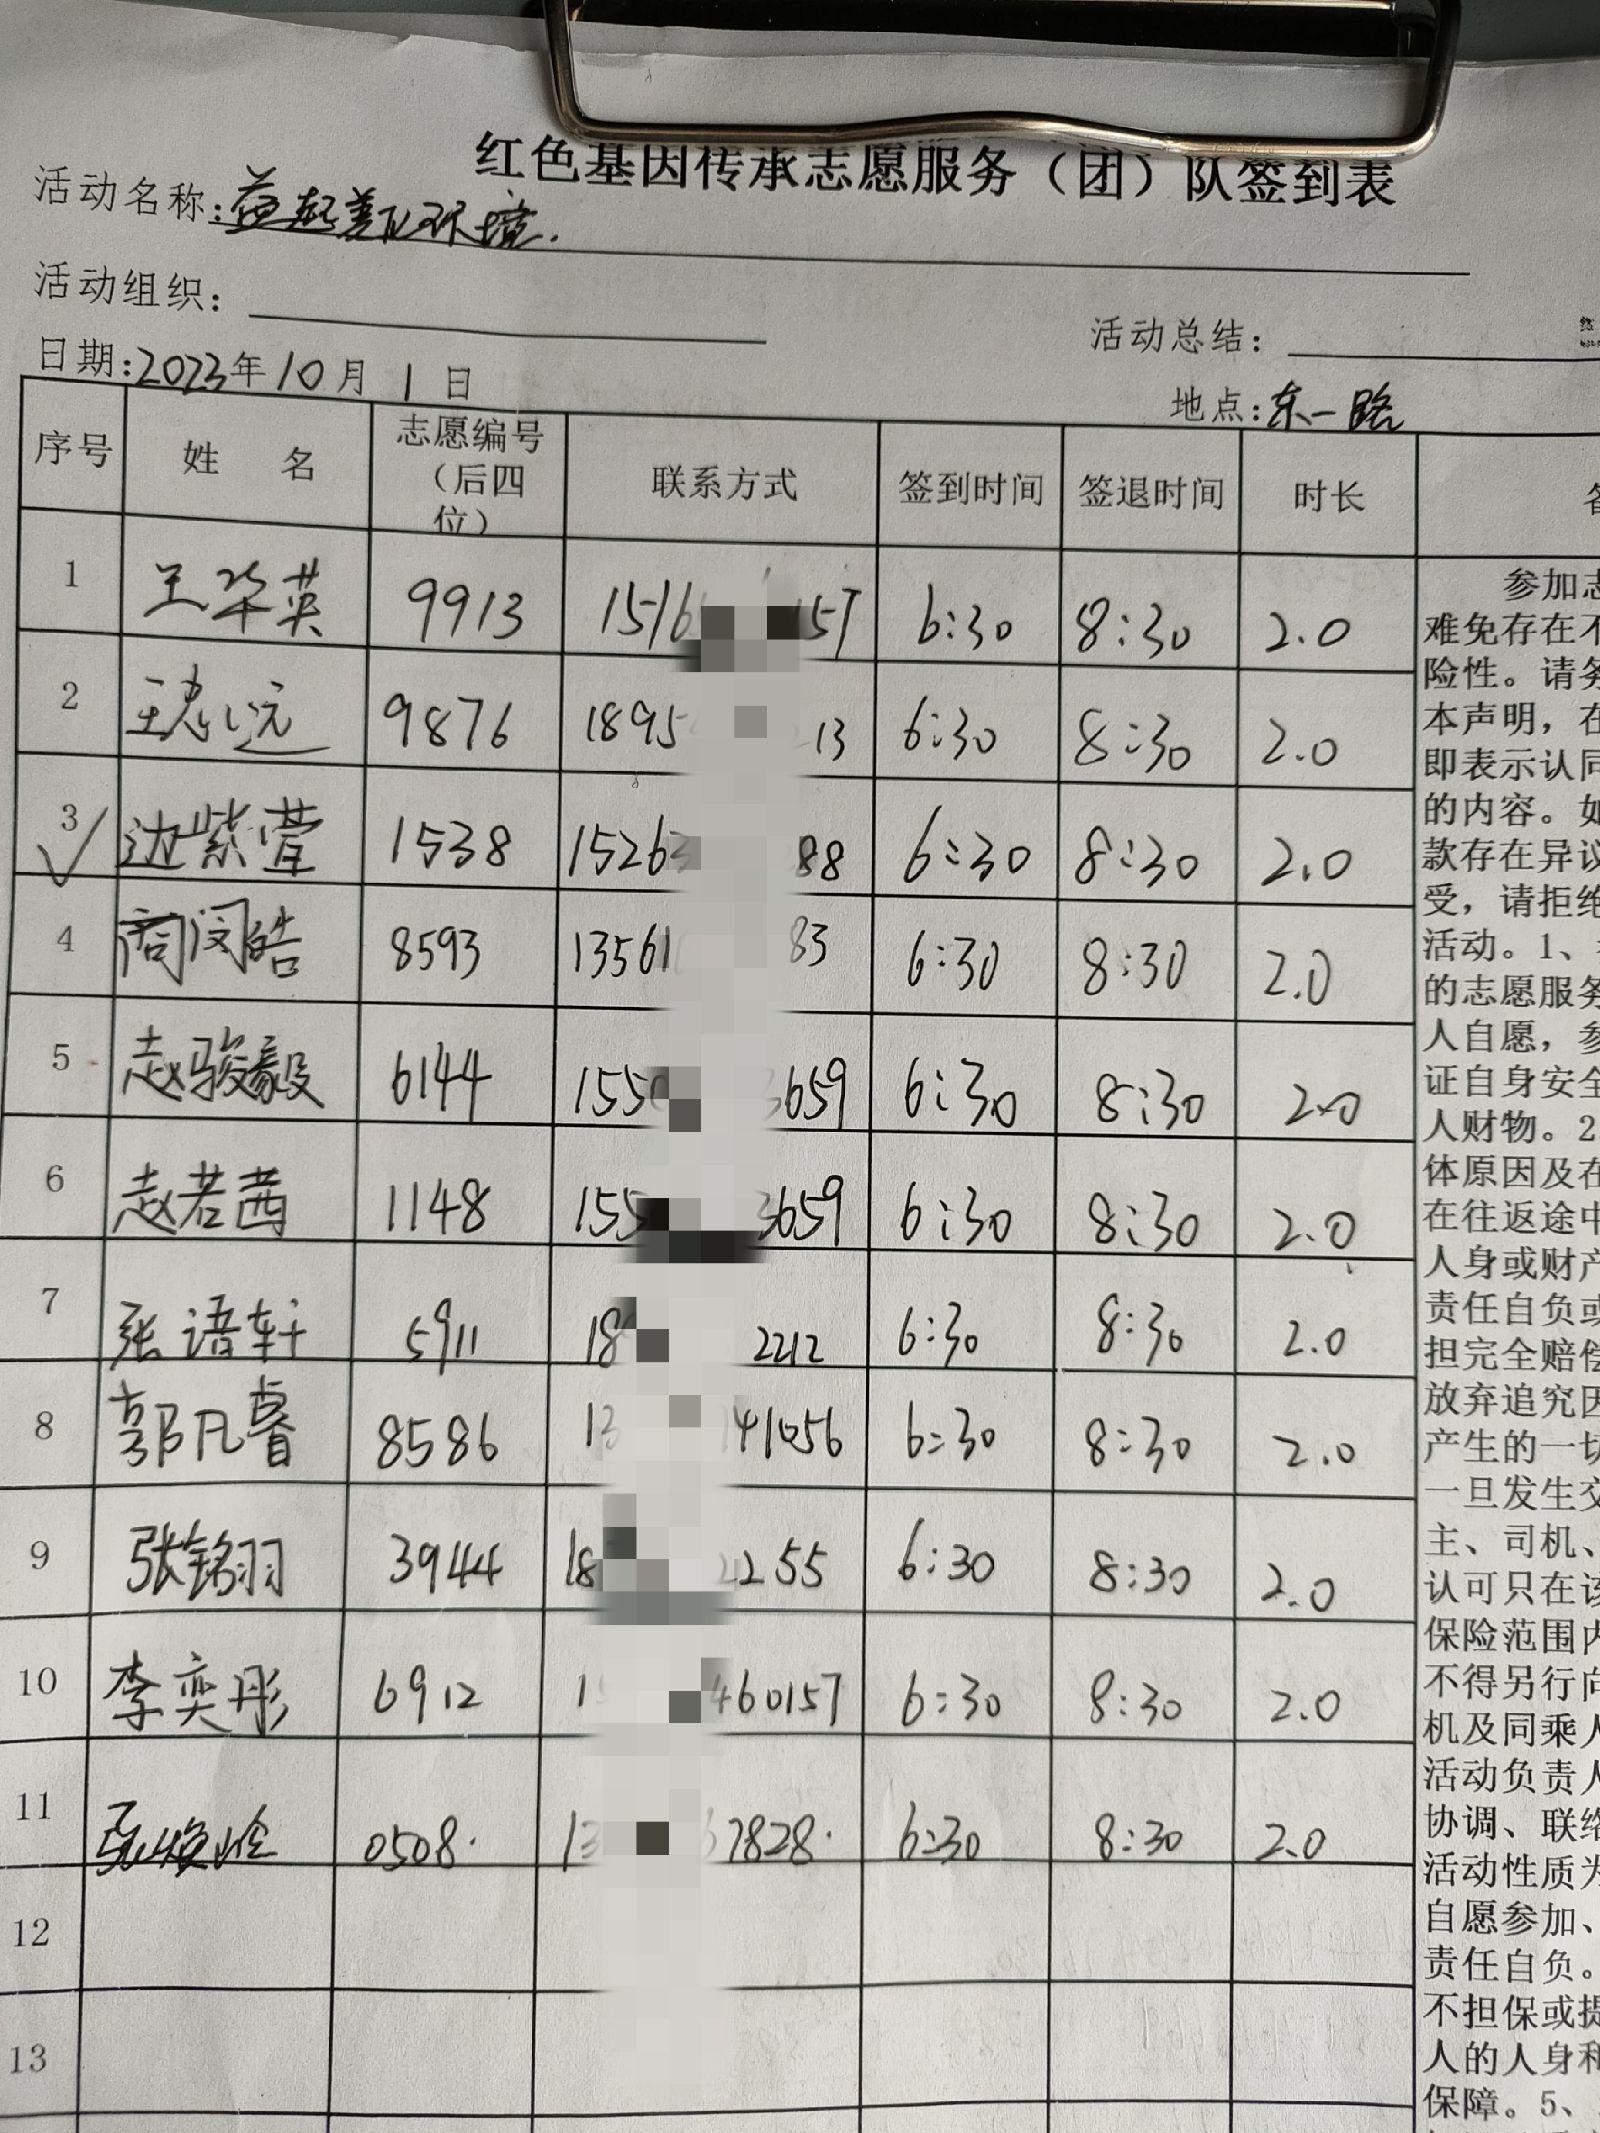 红色基因传承志愿服务（团）队签到表
活动名称：益起美化环境.
活动组织：
活动总结：
日期：2023年10月1日
地点：东一路
序号 姓名 志愿编号（后四位） 联系方式 签到时间 签退时间 时长
1 王华英 9913 1516 157 6:30 8:30 2.0
2 王志远 9876 1895 13 6:30 8:30 2.0
3 边紫萱 1538 15263 88 6:30 8:30 2.0
4 商闵皓 8593 13561 83 6:30 8:30 2.0
5 赵骏毅 6144 155 3659 6:30 8:30 2.0
6 赵若茜 1148 155 3659 6:30 8:30 2.0
7 张语轩 5911 18 2212 6:30 8:30 2.0
8 郭凡睿 8586 13 141056 6:30 8:30 2.0
9 张铭羽 3944 18 2255 6:30 8:30 2.0
10 李奕彤 6912 15 460157 6:30 8:30 2.0
11 0508. 13 7828. 6:30 8:30 2.0
12
13
参加志
难免存在不
险性。请务
本声明，在
即表示认同
的内容。如
款存在异议
受，请拒绝
活动。1、
的志愿服务
人自愿，参
证自身安全
人财物。2
体原因及在
在往返途中
人身或财产
责任自负或
担完全赔偿
放弃追究因
产生的一切
一旦发生交
主、司机、
认可只在该
保险范围内
不得另行向
机及同乘人
活动负责人
协调、联络
活动性质为
自愿参加、
责任自负。
不担保或提
人的人身和
保障。5、